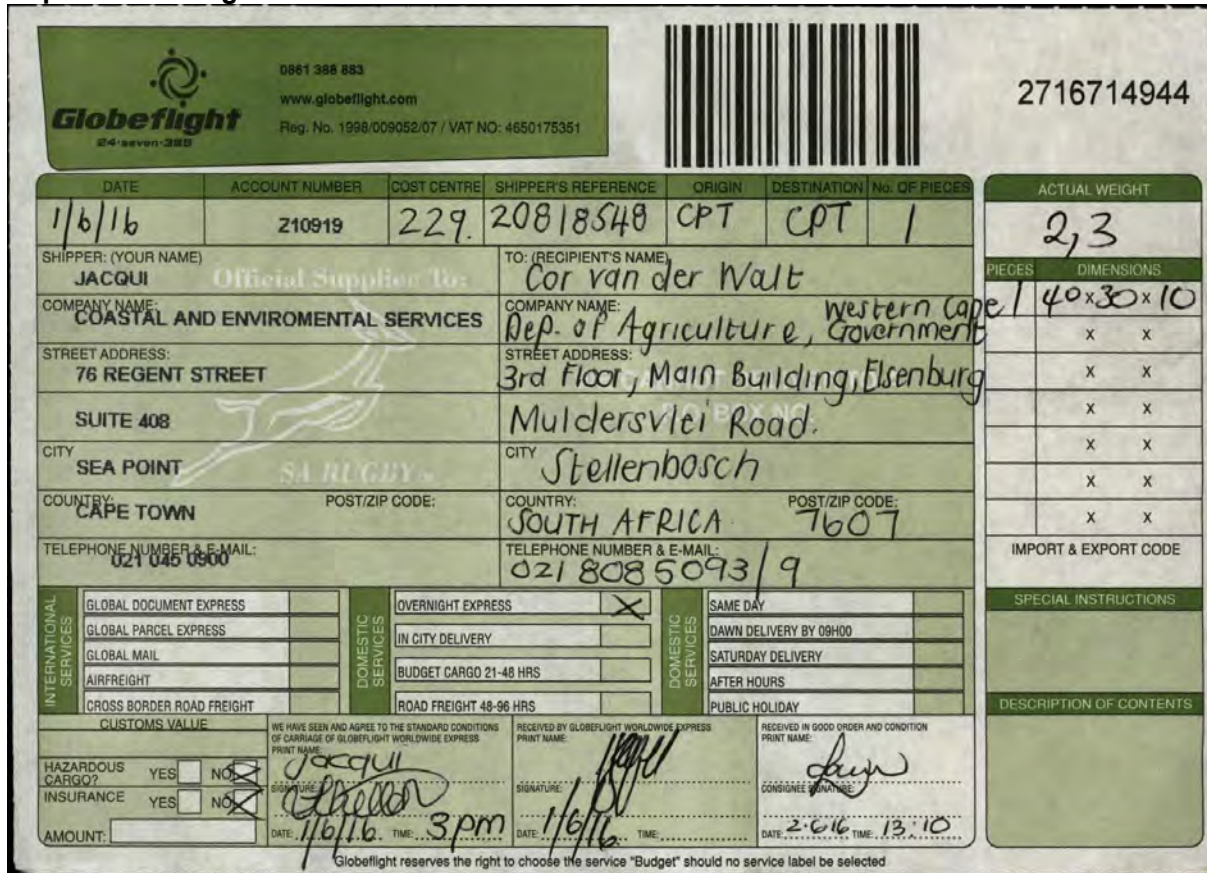 Globeflight
24·seven·365
0861 388 883
www.globeflight.com
Reg. No. 1998/009052/07 / VAT NO: 4650175351
2716714944
DATE ACCOUNT NUMBER COST CENTRE SHIPPER'S REFERENCE ORIGIN DESTINATION No. OF PIECES
1/6/16 Z10919 229. 20818548 CPT CPT 1
ACTUAL WEIGHT
2,3
PIECES DIMENSIONS
1 40 x 30 x 10
x x
x x
x x
x x
x x
x x
IMPORT & EXPORT CODE
SPECIAL INSTRUCTIONS
DESCRIPTION OF CONTENTS
SHIPPER: (YOUR NAME)
JACQUI
Official Supplier To:
COMPANY NAME:
COASTAL AND ENVIROMENTAL SERVICES
STREET ADDRESS:
76 REGENT STREET
SUITE 408
CITY
SEA POINT
SA RUGBY
COUNTRY: POST/ZIP CODE:
CAPE TOWN
TELEPHONE NUMBER & E-MAIL:
021 045 0900
TO: (RECIPIENT'S NAME)
Cor van der Walt
COMPANY NAME:
Dep. of Agriculture, Western Cape Government
STREET ADDRESS:
3rd Floor, Main Building, Elsenburg
Muldersvlei Road.
CITY
Stellenbosch
COUNTRY: POST/ZIP CODE:
SOUTH AFRICA 7607
TELEPHONE NUMBER & E-MAIL:
021 808 5093/9
INTERNATIONAL SERVICES
GLOBAL DOCUMENT EXPRESS
GLOBAL PARCEL EXPRESS
GLOBAL MAIL
AIRFREIGHT
CROSS BORDER ROAD FREIGHT
DOMESTIC SERVICES
OVERNIGHT EXPRESS X
IN CITY DELIVERY
BUDGET CARGO 21-48 HRS
ROAD FREIGHT 48-96 HRS
DOMESTIC SERVICES
SAME DAY
DAWN DELIVERY BY 09H00
SATURDAY DELIVERY
AFTER HOURS
PUBLIC HOLIDAY
CUSTOMS VALUE
HAZARDOUS CARGO? YES NO X
INSURANCE YES NO X
AMOUNT:
WE HAVE SEEN AND AGREE TO THE STANDARD CONDITIONS
OF CARRIAGE OF GLOBEFLIGHT WORLDWIDE EXPRESS
PRINT NAME:
Jacqui
SIGNATURE:
DATE: 1/6/16. TIME: 3pm
RECEIVED BY GLOBEFLIGHT WORLDWIDE EXPRESS
PRINT NAME:
SIGNATURE:
DATE: 1/6/16 TIME:
RECEIVED IN GOOD ORDER AND CONDITION
PRINT NAME:
CONSIGNEE SIGNATURE:
DATE: 2·6·16 TIME: 13:10
Globeflight reserves the right to choose the service "Budget" should no service label be selected